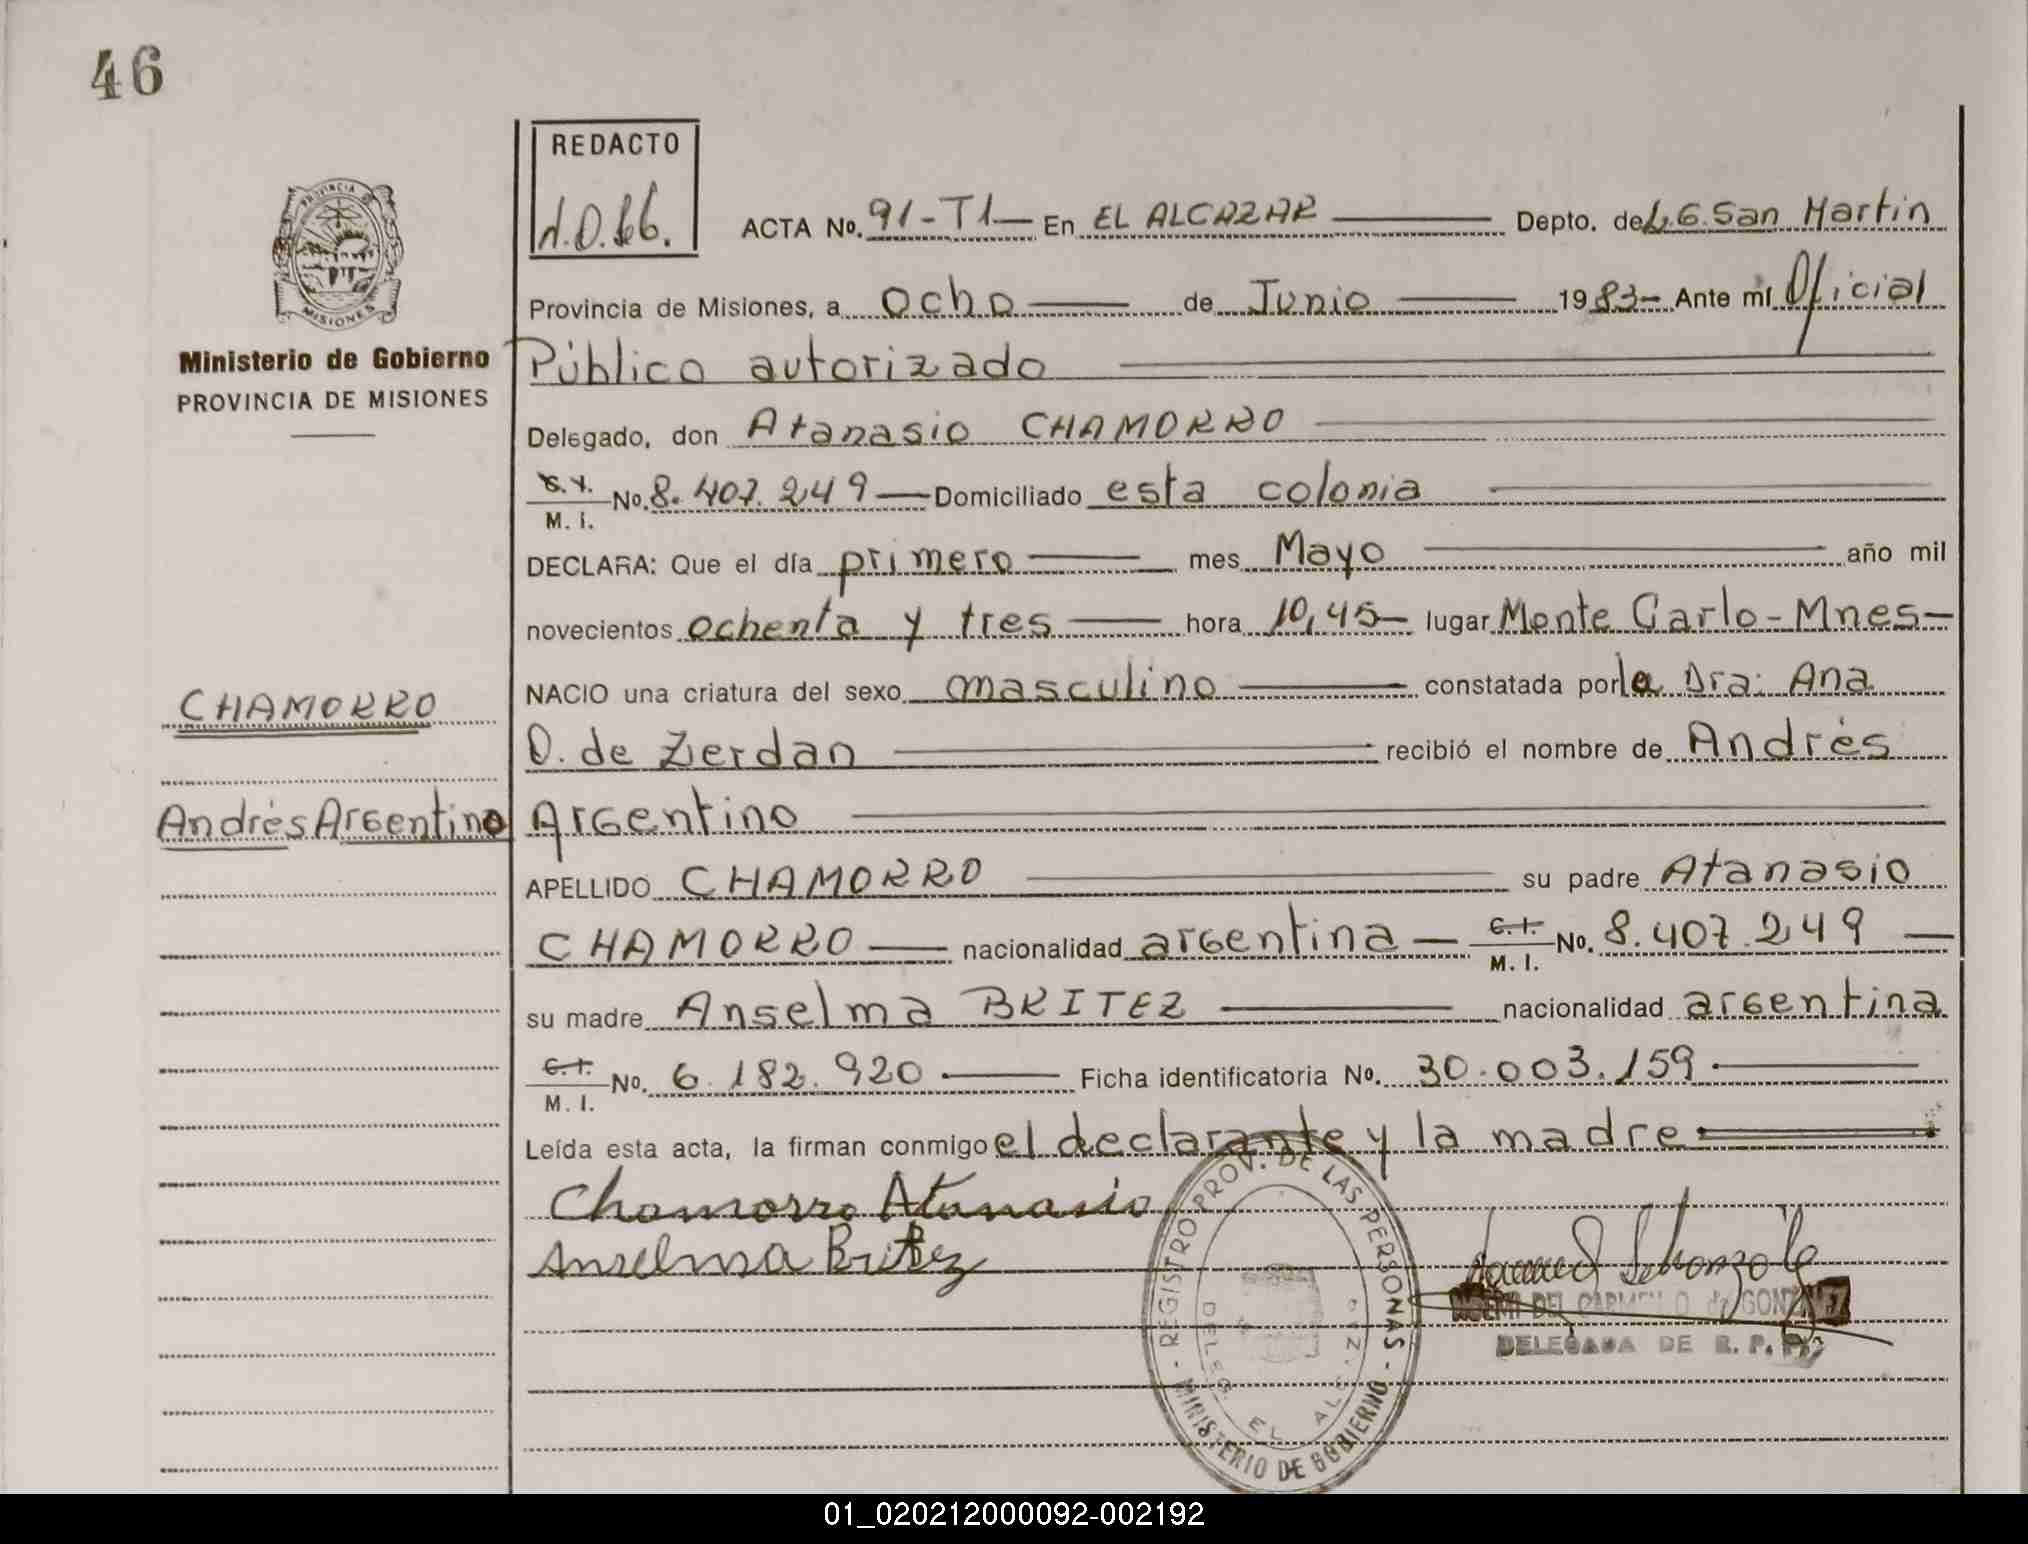 46
REDACTO
PROVINCIA DE
MISIONES
ACTA No. 91-T1— En EL ALCAZAR —— Depto. de L.G. San Martin
Provincia de Misiones, a ocho —— de Junio —— 1983- Ante mí Oficial
Ministerio de Gobierno
PROVINCIA DE MISIONES
Público autorizado
Delegado, don Atanasio CHAMORRO
M. I. No. 8.407.249 — Domiciliado esta colonia
DECLARA: Que el día primero —— mes Mayo —— año mil
novecientos ochenta y tres —— hora 10,45— lugar Monte Carlo-Mnes-
CHAMORRO
NACIO una criatura del sexo masculino —— constatada por la Dra. Ana
O. de Zerdan —— recibió el nombre de Andrés
Andrés Argentino
Argentino
APELLIDO CHAMORRO —— su padre Atanasio
CHAMORRO —— nacionalidad argentina — C.I. M. I. No. 8.407.249 —
su madre Anselma BRITEZ —— nacionalidad argentina
C.I. M. I. No. 6.182.920 —— Ficha identificatoria No. 30.003.159
Leída esta acta, la firman conmigo el declarante y la madre
Chamorro Atanasio
Anselma Britez
REGISTRO PROV. DE LAS PERSONAS - MINISTERIO DE GOBIERNO -
DELEG. EL
DEL CARMEN O. de GONZALEZ
DELEGADA DE R. P. P.
01_020212000092-002192